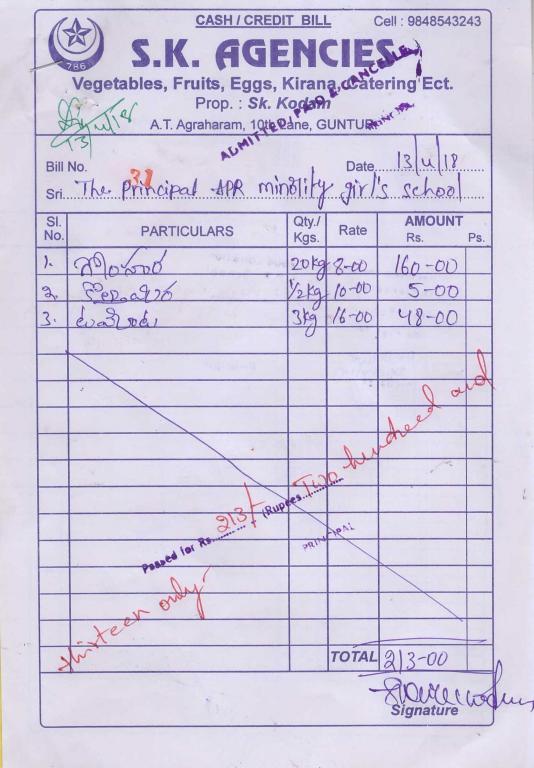 CASH / CREDIT BILL
Cell : 9848543243
786
S.K. AGENCIES
Vegetables, Fruits, Eggs, Kirana, Catering Ect.
Prop. : Sk. Kodam
A.T. Agraharam, 10th Lane, GUNTUR
ADMITTED/PAID & CANCELLED
13/11/18
Bill No. 31
Date 13/11/18
Sri. The Principal APR minority girl's school
Sl. No. PARTICULARS Qty./ Kgs. Rate AMOUNT Rs. Ps.
1. 20kg 8-00 160-00
2. 1/2kg 10-00 5-00
3. 3kg 16-00 48-00
Passed for Rs. 213/- (Rupees Two hundred and
thirteen only-
PRINCIPAL
TOTAL 213-00
Signature